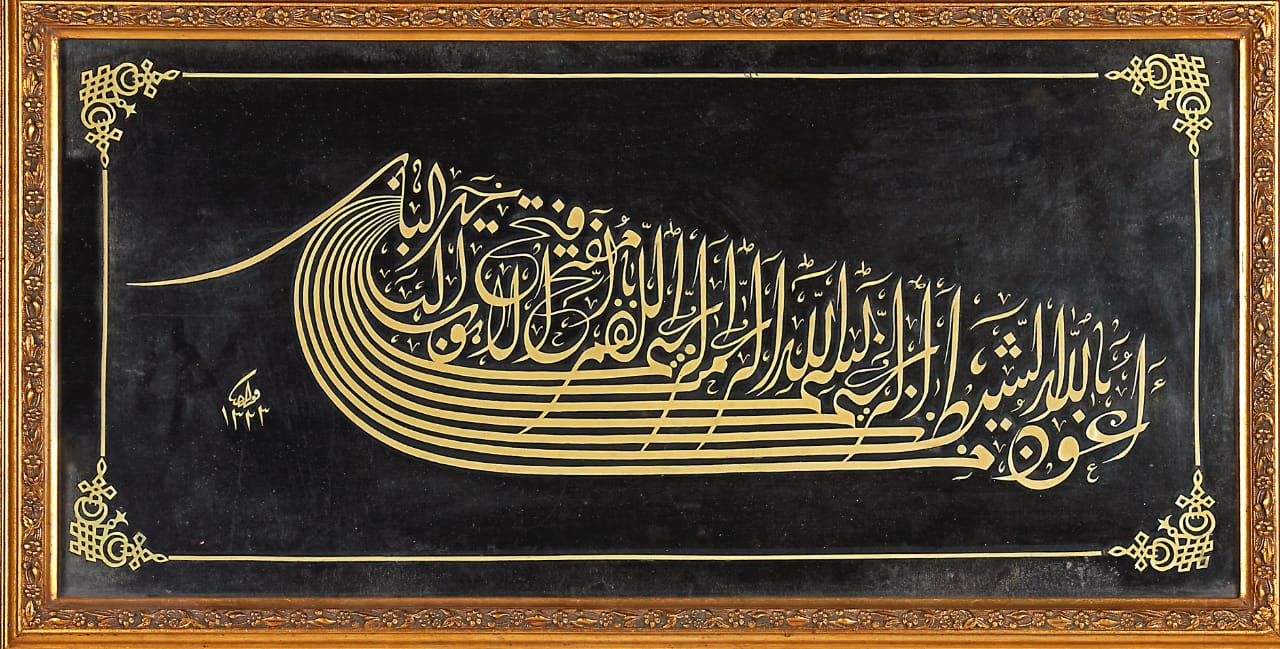 أعوذ بالله من الشيطان الرجيم
بسم الله الرحمن الرحيم
اللهم يا مفتح الأبواب افتح لنا خير الباب
١٣٢٣